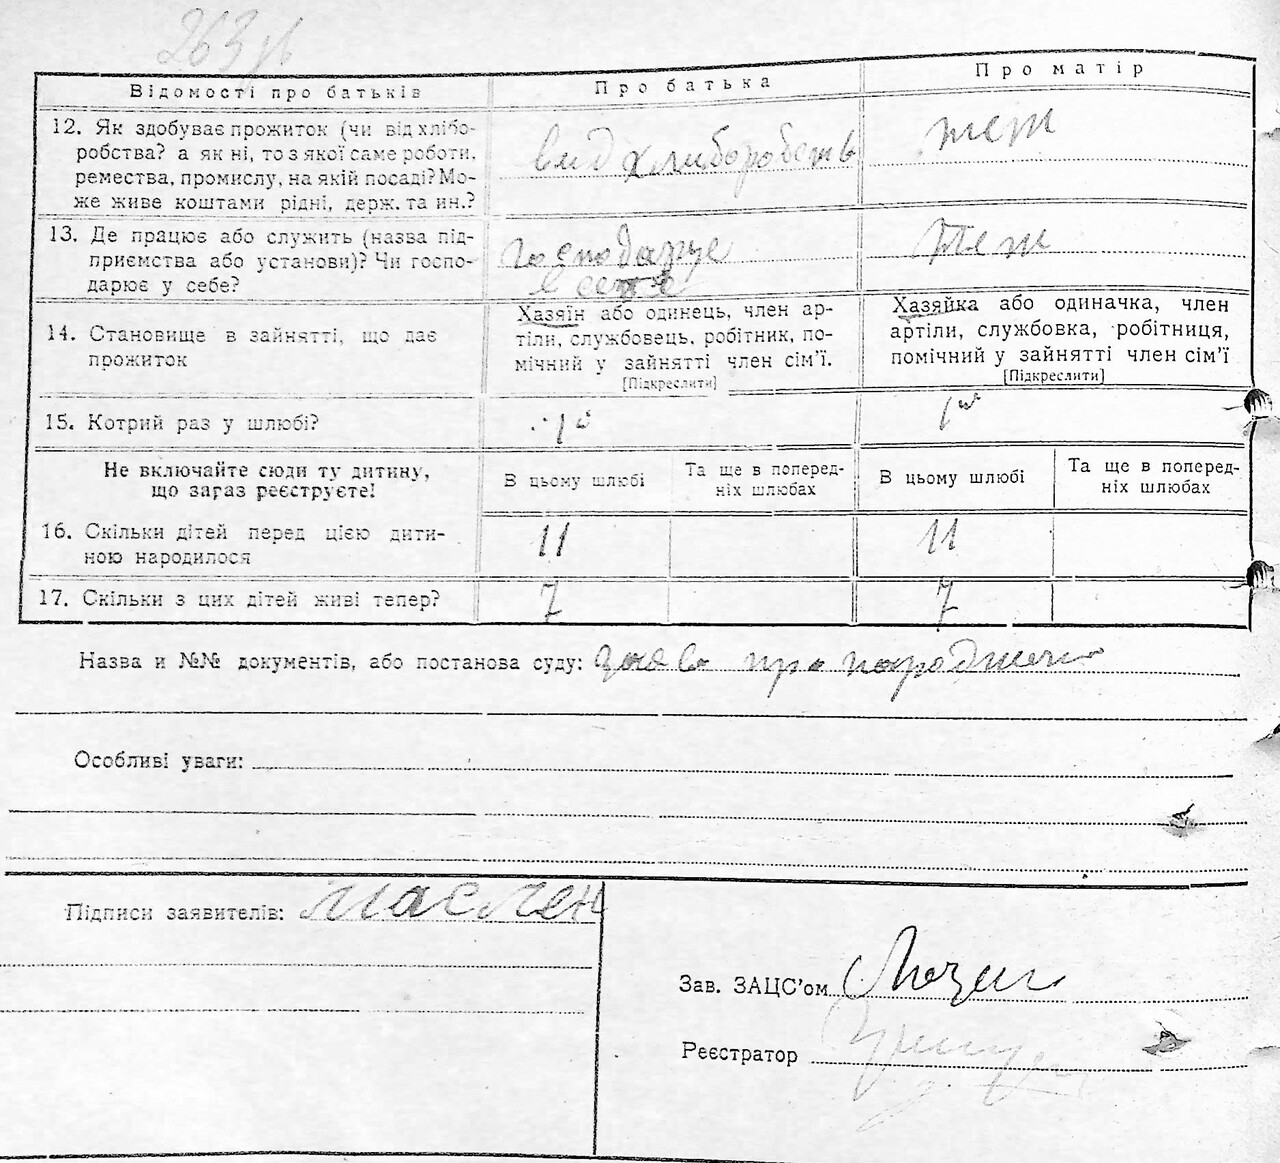 263 зв
Відомості про батьків
Про батька
Про матір
12. Як здобуває прожиток (чи від хлібо-
робства? а як ні, то з якої саме роботи,
ремества, промислу, на якій посаді? Мо-
же живе коштами рідні, держ. та ин.?
вид хлиборобств
теж
13. Де працює або служить (назва під-
приємства або установи)? Чи госпо-
дарює у себе?
господарує
в себе
теж
14. Становище в зайнятті, що дає
прожиток
Хазяїн або одинець, член ар-
тіли, службовець, робітник, по-
мічний у зайнятті член сім'ї.
[Підкреслити]
Хазяйка або одиначка, член
артіли, службовка, робітниця,
помічний у зайнятті член сім'ї
[Підкреслити]
15. Котрий раз у шлюбі?
1й
1й
Не включайте сюди ту дитину,
що зараз реєструєте!
В цьому шлюбі
Та ще в поперед-
ніх шлюбах
В цьому шлюбі
Та ще в поперед-
ніх шлюбах
16. Скільки дітей перед цією дити-
ною народилося
11
11
17. Скільки з цих дітей живі тепер?
7
7
Назва и №№ документів, або постанова суду: заява про народження
Особливі уваги:
Підписи заявителів: Маслен
Зав. ЗАЦС'ом
Реєстратор